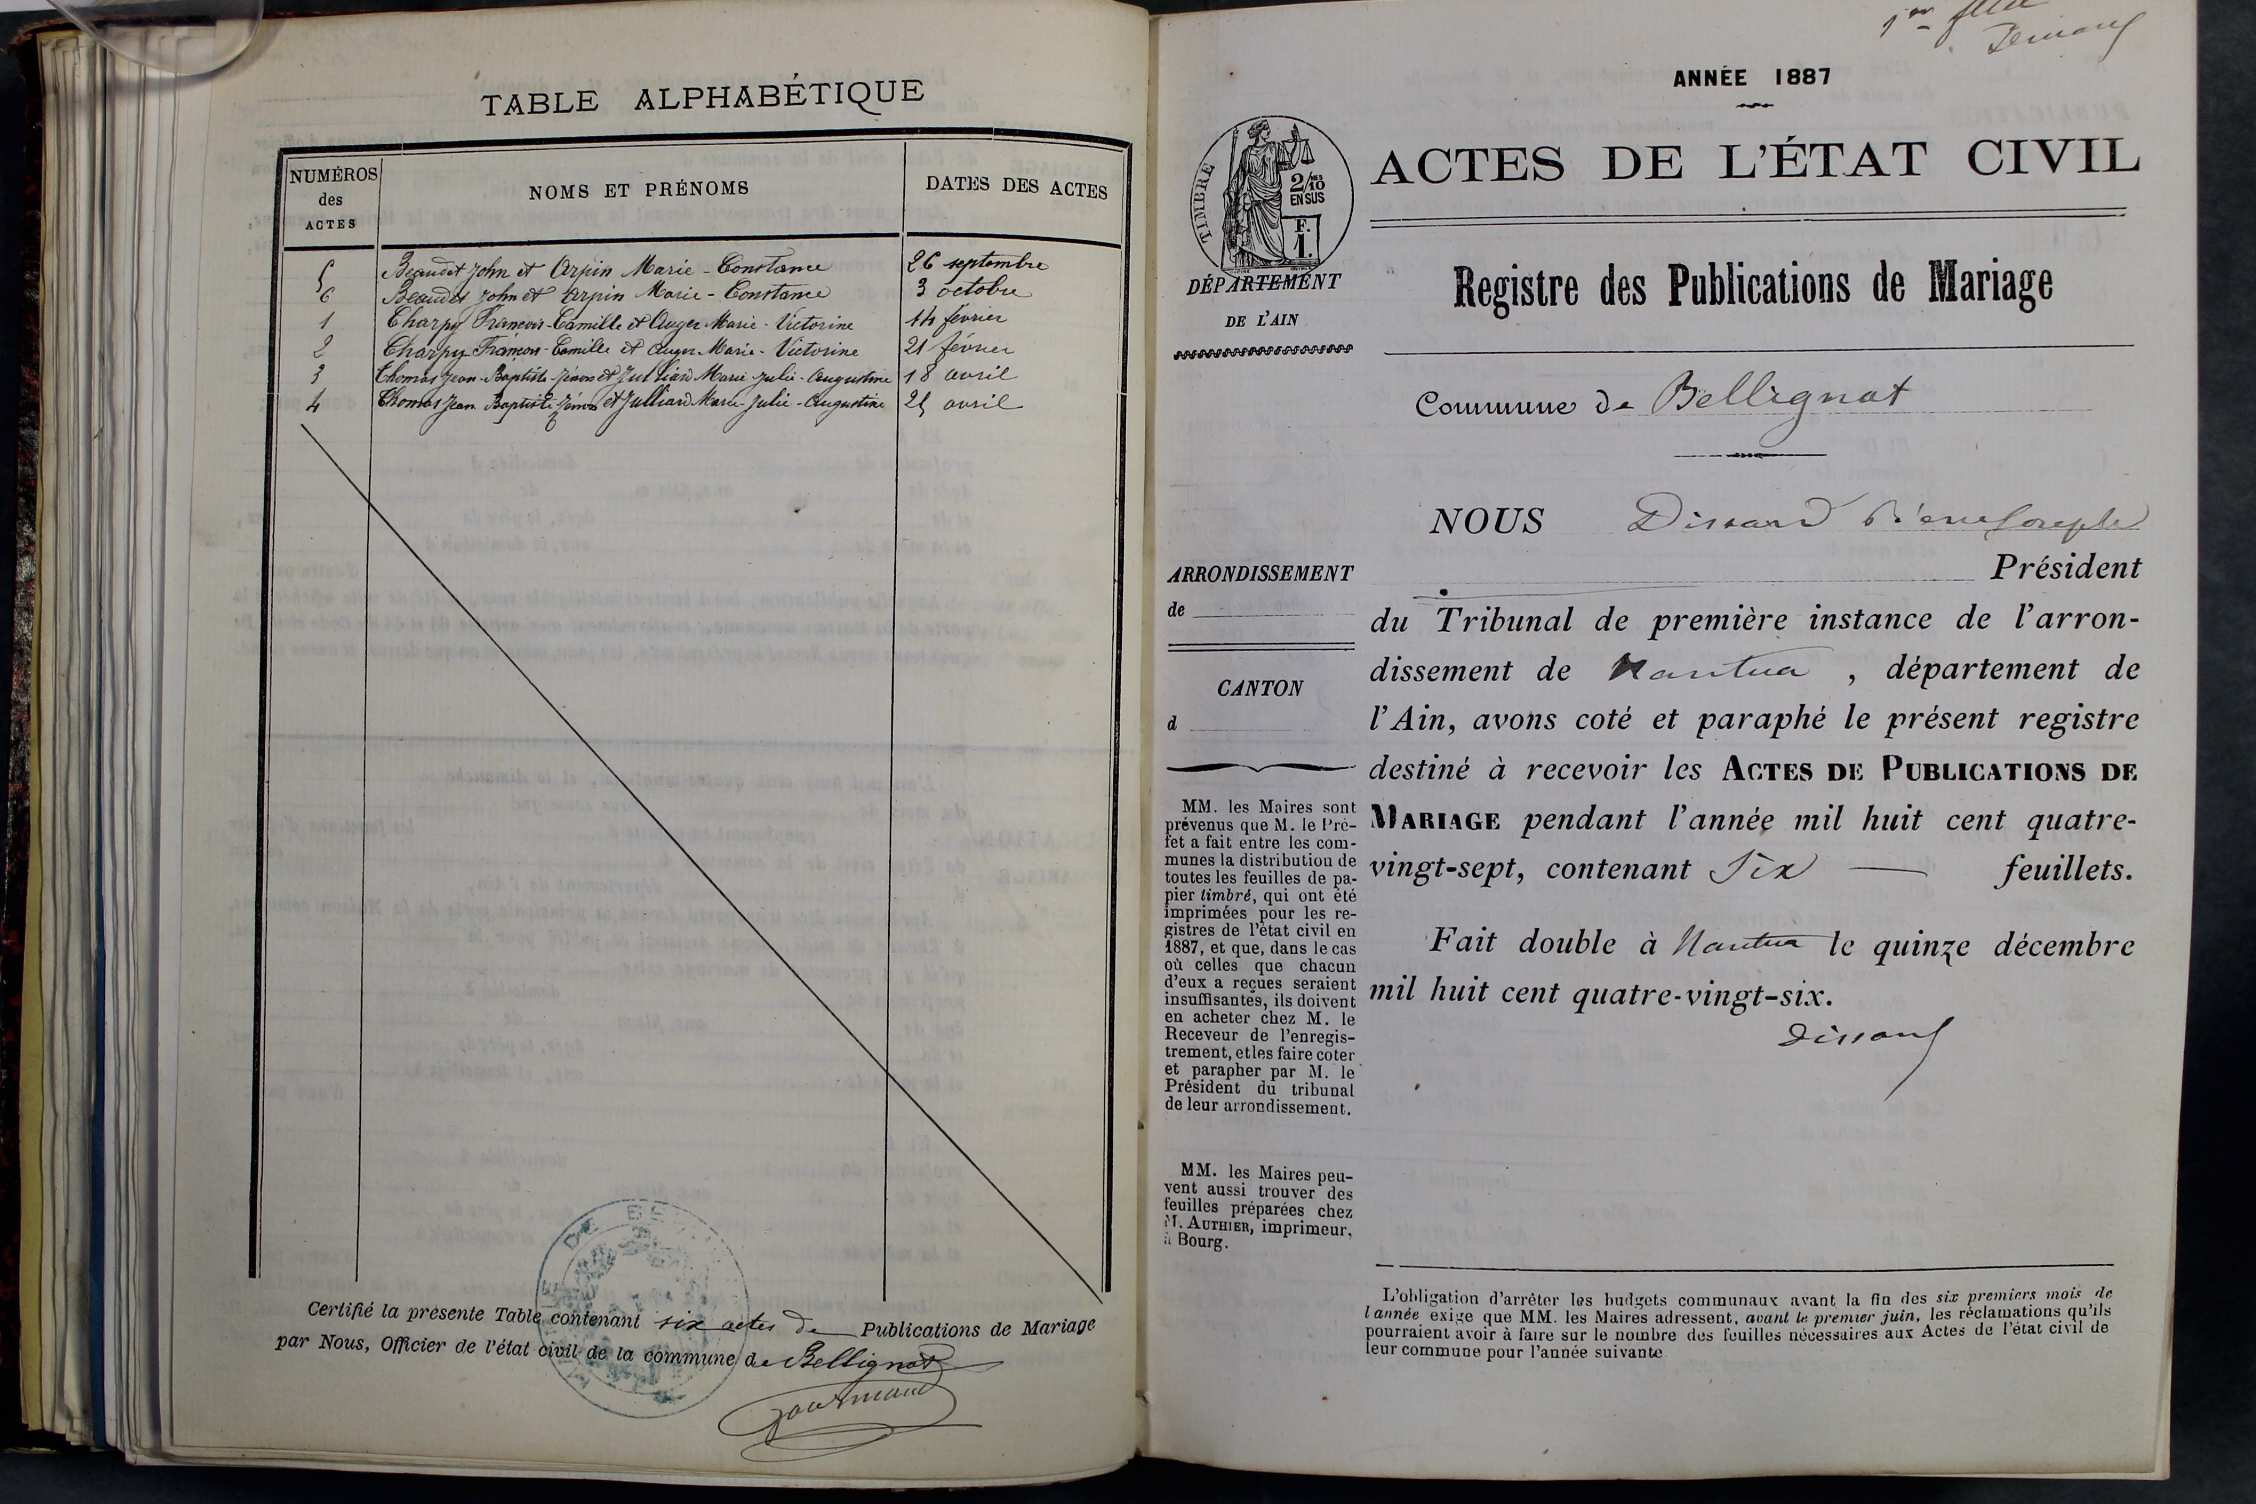 TABLE ALPHABÉTIQUE
NUMÉROS des ACTES
NOMS ET PRÉNOMS
DATES DES ACTES
5 Beaudet John et Arpin Marie-Constance 26 septembre
6 Beaudet John et Arpin Marie-Constance 3 octobre
1 Charpy François-Camille et Auger Marie-Victorine 14 février
2 Charpy François-Camille et Auger Marie-Victorine 21 février
3 Thomas Jean-Baptiste-Zénon et Julliard Marie-Julie-Augustine 18 avril
4 Thomas Jean Baptiste Zénon et Julliard Marie-Julie-Augustine 25 avril
Certifié la présente Table contenant six actes de Publications de Mariage
par Nous, Officier de l'état civil de la commune de Bellignat
DE BE
ANNÉE 1887
TIMBRE
2/10
EN SUS
F.
1.
DÉPARTEMENT
DE L'AIN
ACTES DE L'ÉTAT CIVIL
Registre des Publications de Mariage
Commune de Bellignat
NOUS Dissard Pierre Joseph
Président
ARRONDISSEMENT
de
CANTON
d
du Tribunal de première instance de l'arron-
dissement de Nantua, département de
l'Ain, avons coté et paraphé le présent registre
destiné à recevoir les ACTES DE PUBLICATIONS DE
MARIAGE pendant l'année mil huit cent quatre-
vingt-sept, contenant Six feuillets.
Fait double à Nantua le quinze décembre
mil huit cent quatre-vingt-six.
Dissard
MM. les Maires sont
prévenus que M. le Pré-
fet a fait entre les com-
munes la distribution de
toutes les feuilles de pa-
pier timbré, qui ont été
imprimées pour les re-
gistres de l'état civil en
1887, et que, dans le cas
où celles que chacun
d'eux a reçues seraient
insuffisantes, ils doivent
en acheter chez M. le
Receveur de l'enregis-
trement, et les faire coter
et parapher par M. le
Président du tribunal
de leur arrondissement.
MM. les Maires peu-
vent aussi trouver des
feuilles préparées chez
M. AUTHIER, imprimeur,
à Bourg.
L'obligation d'arrêter les budgets communaux avant la fin des six premiers mois de
l'année exige que MM. les Maires adressent, avant le premier juin, les réclamations qu'ils
pourraient avoir à faire sur le nombre des feuilles nécessaires aux Actes de l'état civil de
leur commune pour l'année suivante